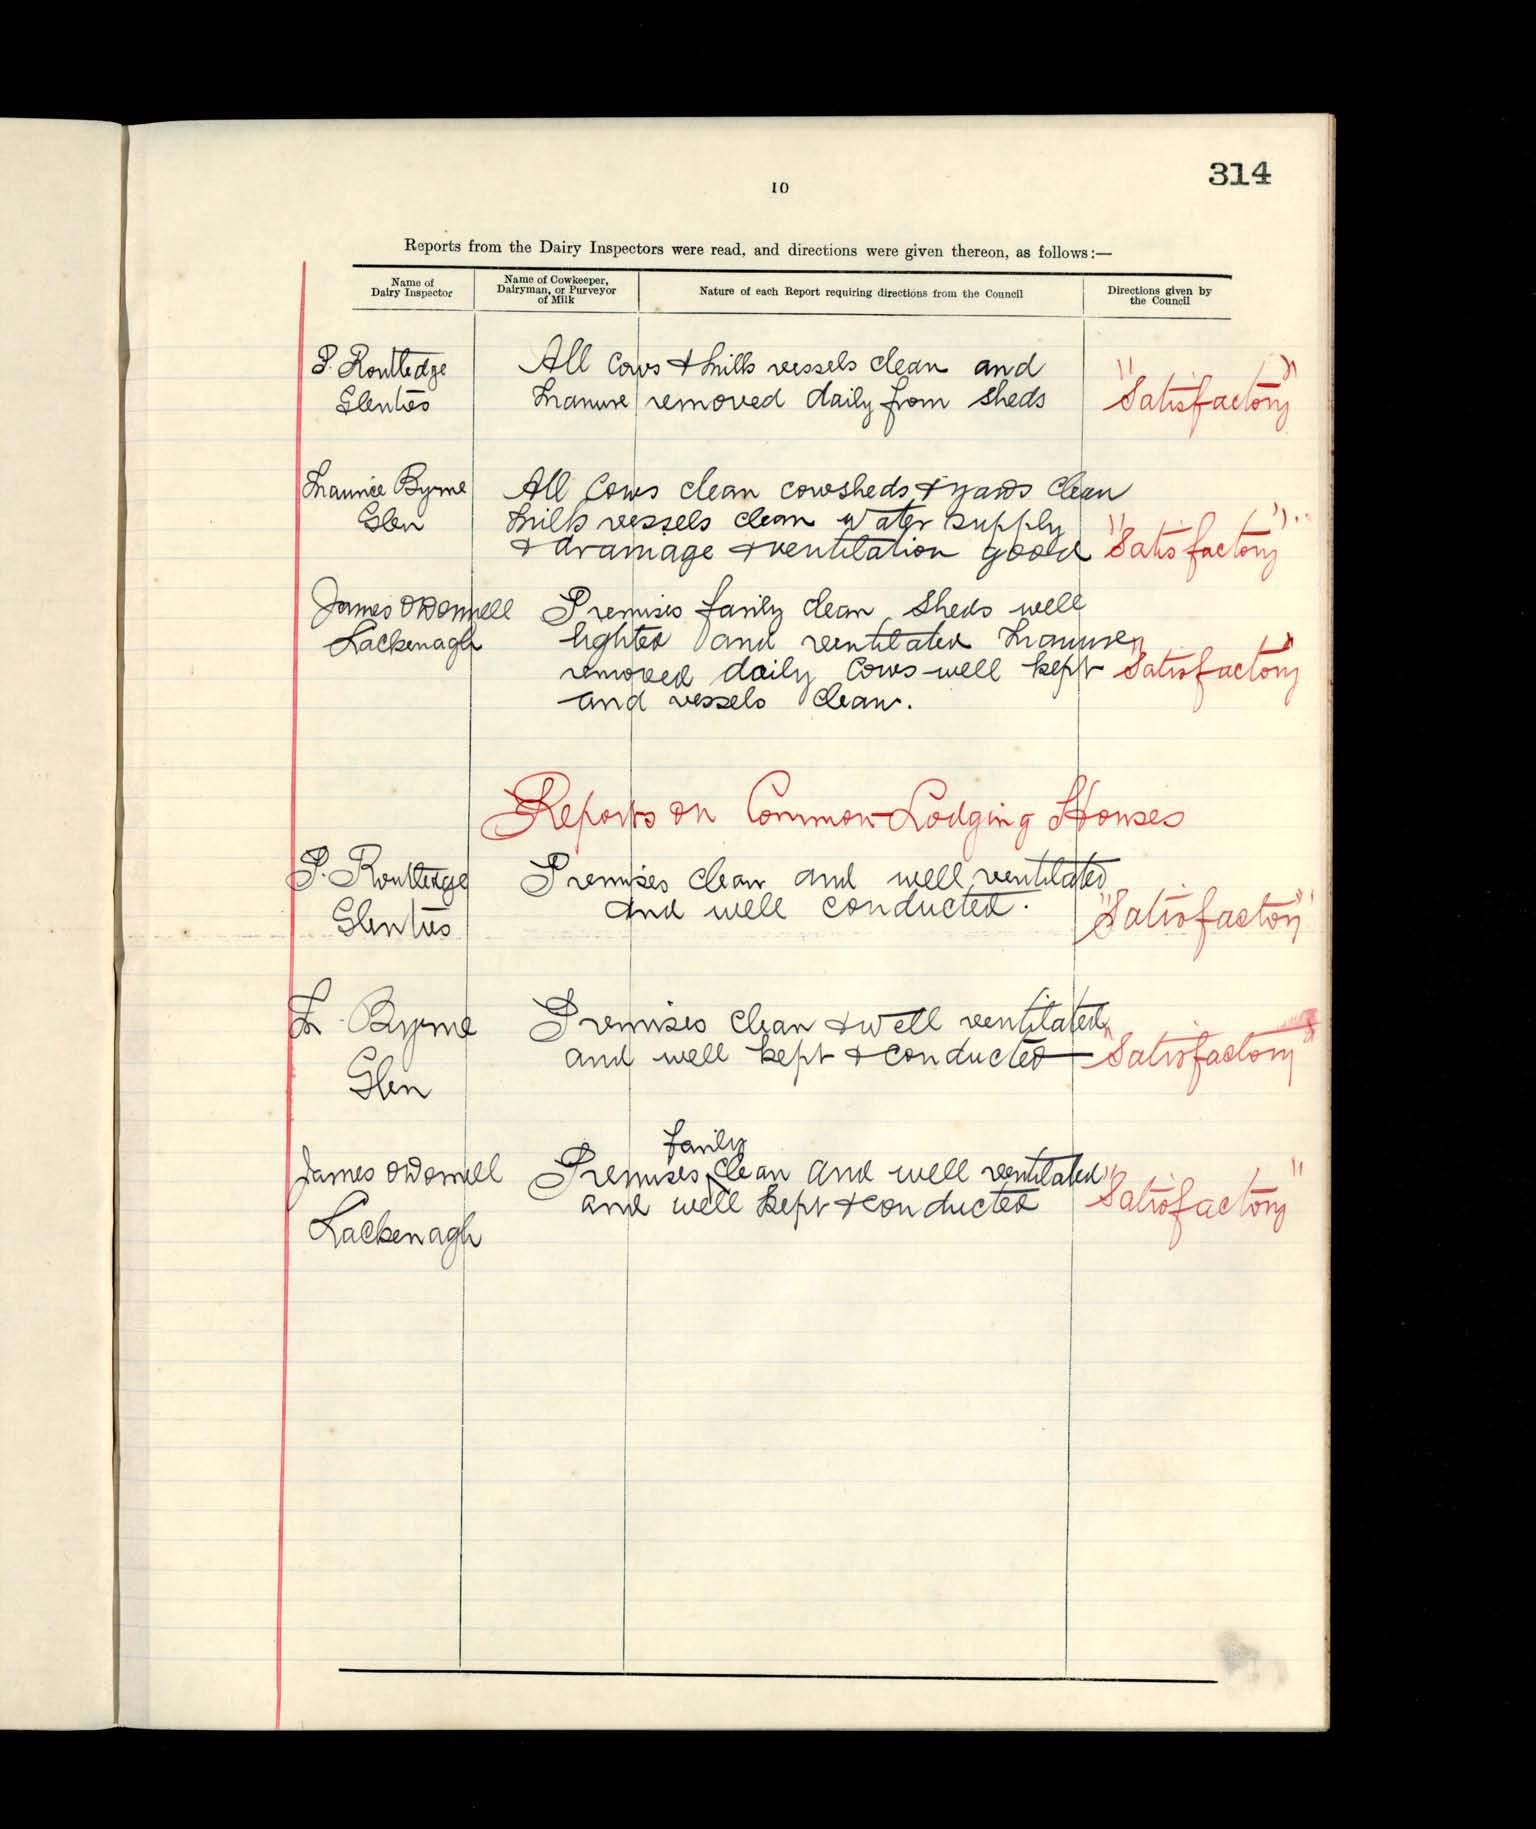 314
10
Reports from the Dairy Inspectors were read, and directions were given thereon, as follows:—
Name of Dairy Inspector
Name of Cowkeeper, Dairyman, or Purveyor of Milk
Nature of each Report requiring directions from the Council
Directions given by the Council
P. Routledge All Cows & milk vessels clean and
Glenties Manure removed daily from sheds "Satisfactory"
Maurice Byrne All Cows clean cowsheds & yards clean
Glen Milk vessels clean water supply
& drainage & ventilation good "Satisfactory"
James O'Donnell Premises fairly clean sheds well
Lackenagh lighted and ventilated Manure
removed daily Cows well kept "Satisfactory"
and vessels clean.
Reports on Common Lodging Houses
P. Routledge Premises clean and well ventilated
Glenties and well conducted. "Satisfactory"
M Byrne Premises clean & well ventilated
and well kept & conducted "Satisfactory"
Glen
fairly
James O'Donnell Premises clean and well ventilated
and well kept & conducted "Satisfactory"
Lackenagh